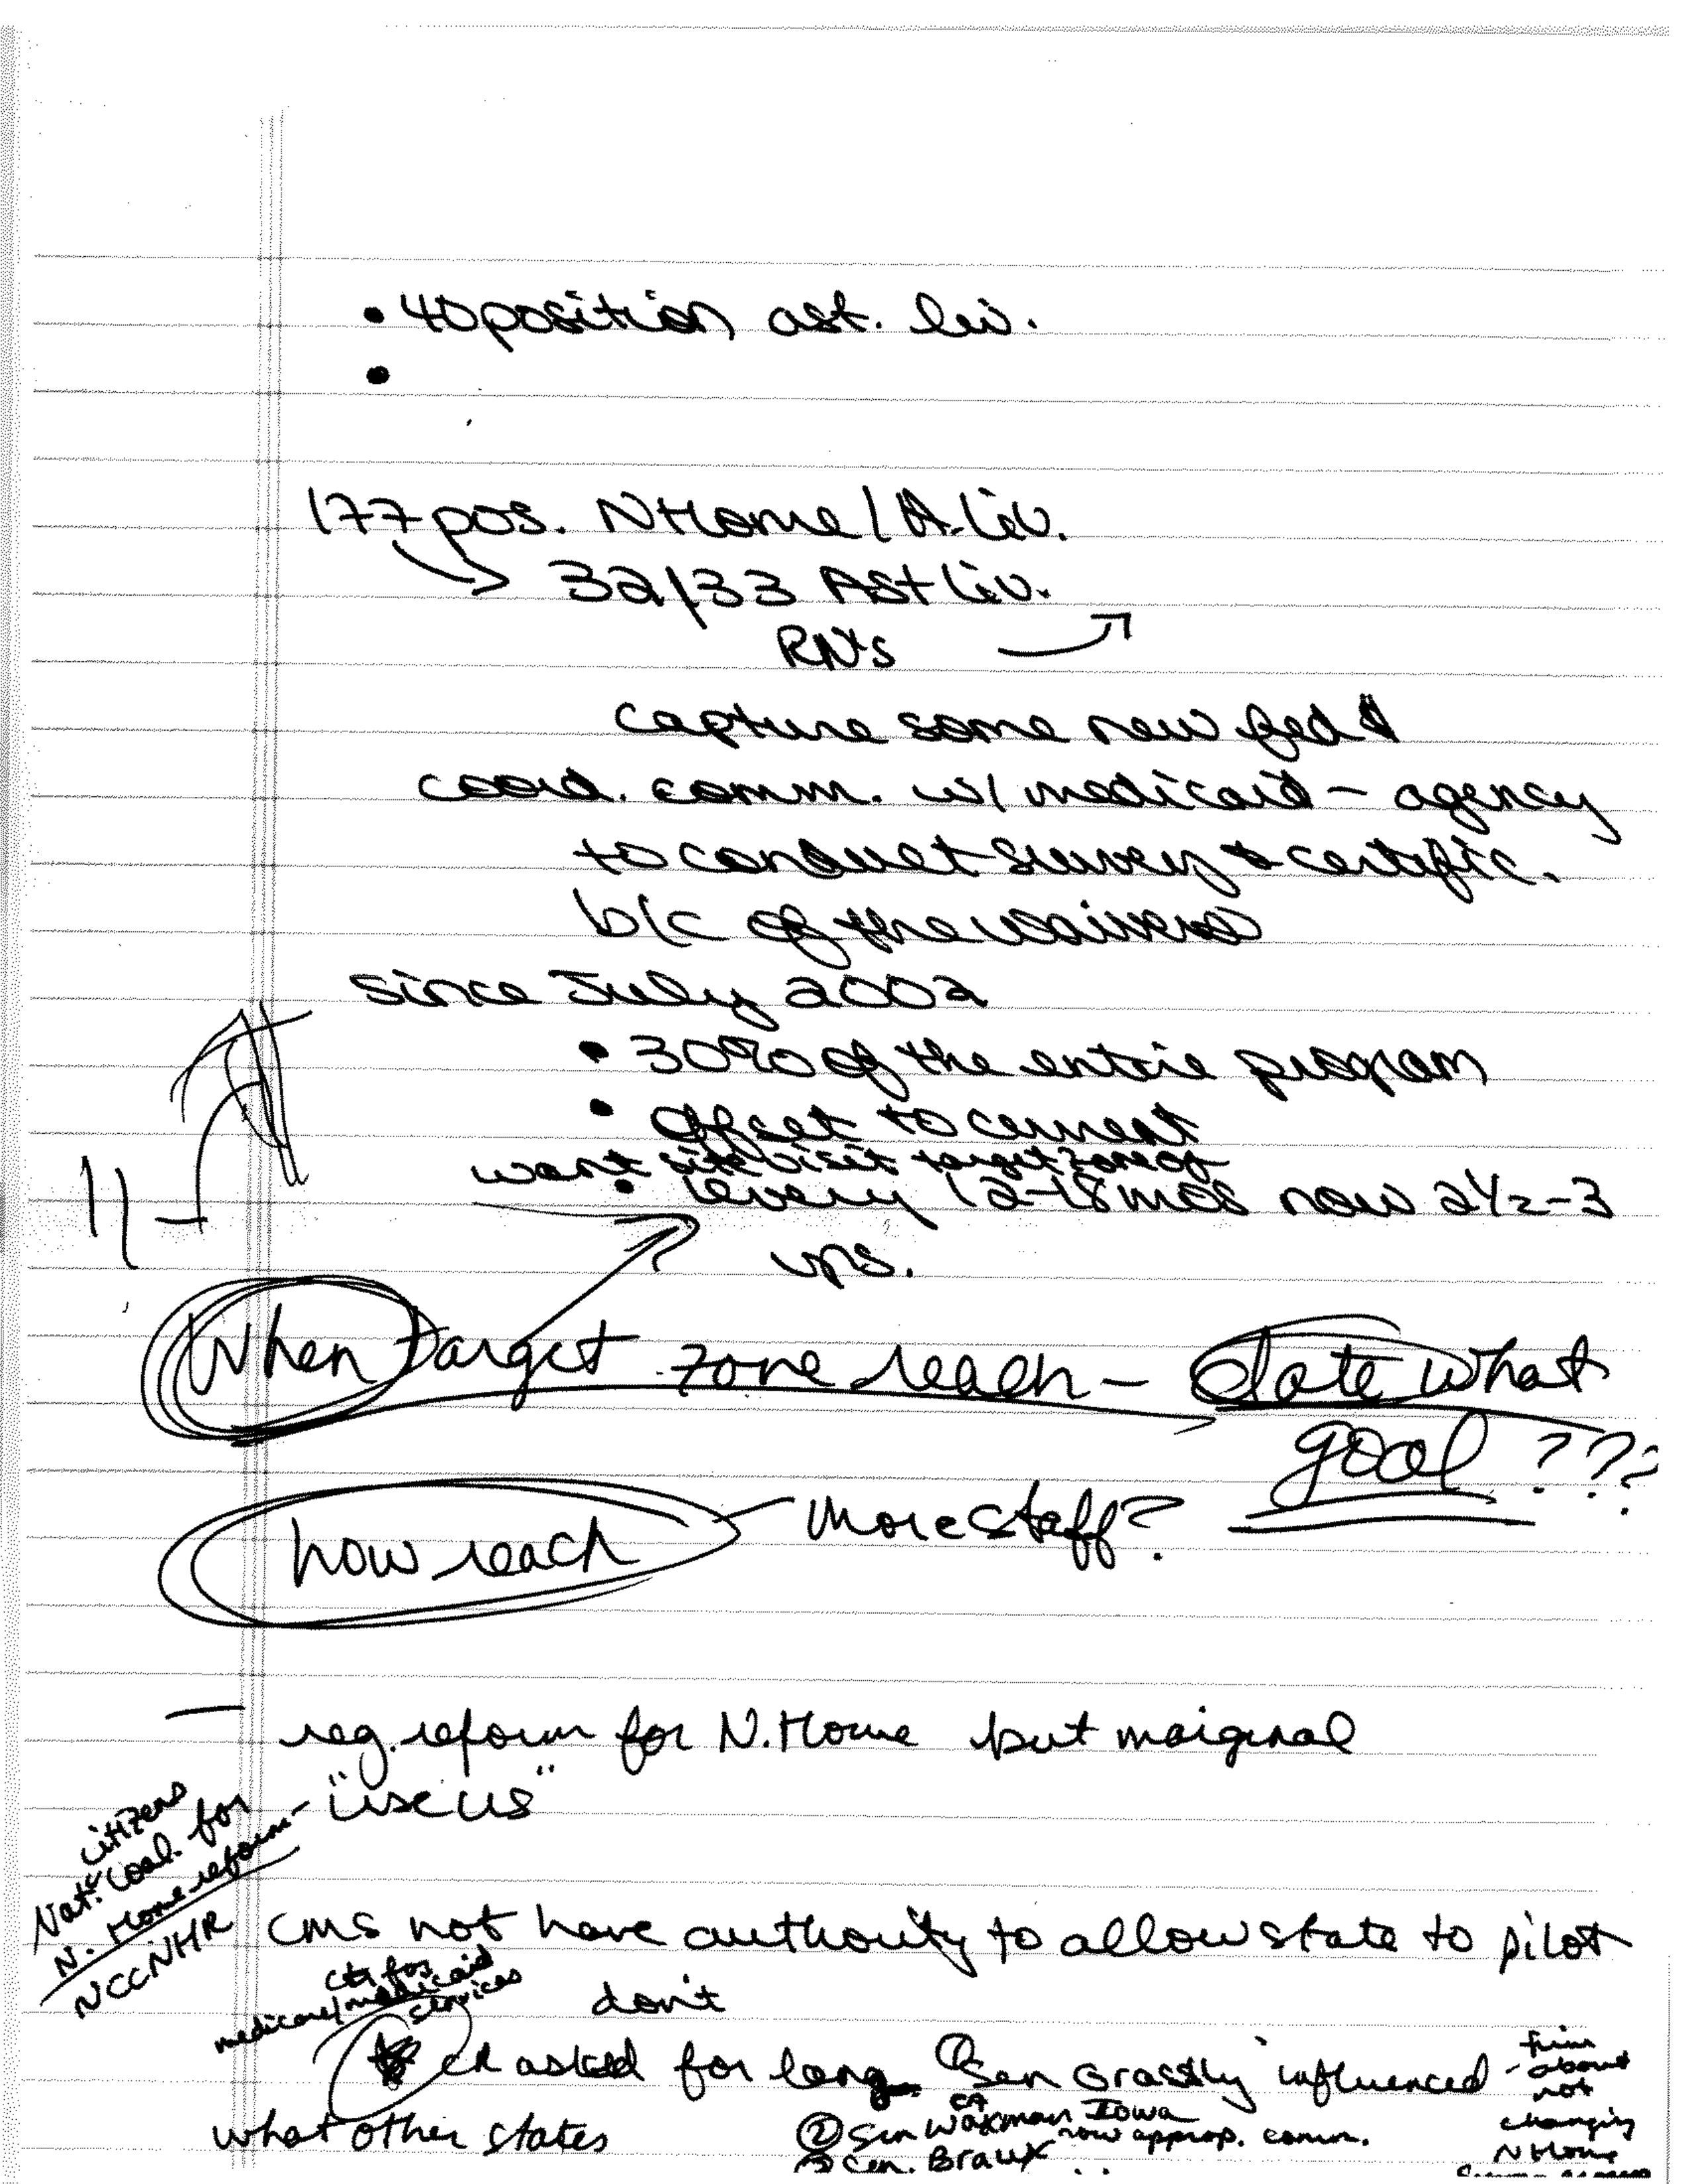 • 40 position ast. liv.
•
177 pos. NHome / A. Liv.
→ 32/33 Ast Liv.
RN's
capture some new fed $
coord. comm. w/ medicaid - agency
to conduct survey & certific.
b/c of the waivered
since July 2002
• 30% of the entire program
• offset to cement
want site visit target zone of
• every 12-18 mos now 2 1/2 - 3
yrs.
When target zone reach - date what
goal ???
how reach - more staff?
reg. reform for N. Home but marginal
"use us"
citizens
Nat'l Coal. for
N. Home reform -
NCCNHR
CMS not have authority to allow state to pilot
Ctr for
medicare/medicaid
services
don't
asked for lang. ① Sen Grassly influenced
- firm
about
not
changing
NHome
what other states
CA
② Sen Waxman Iowa
now approp. comm.
③ Sen. Braux